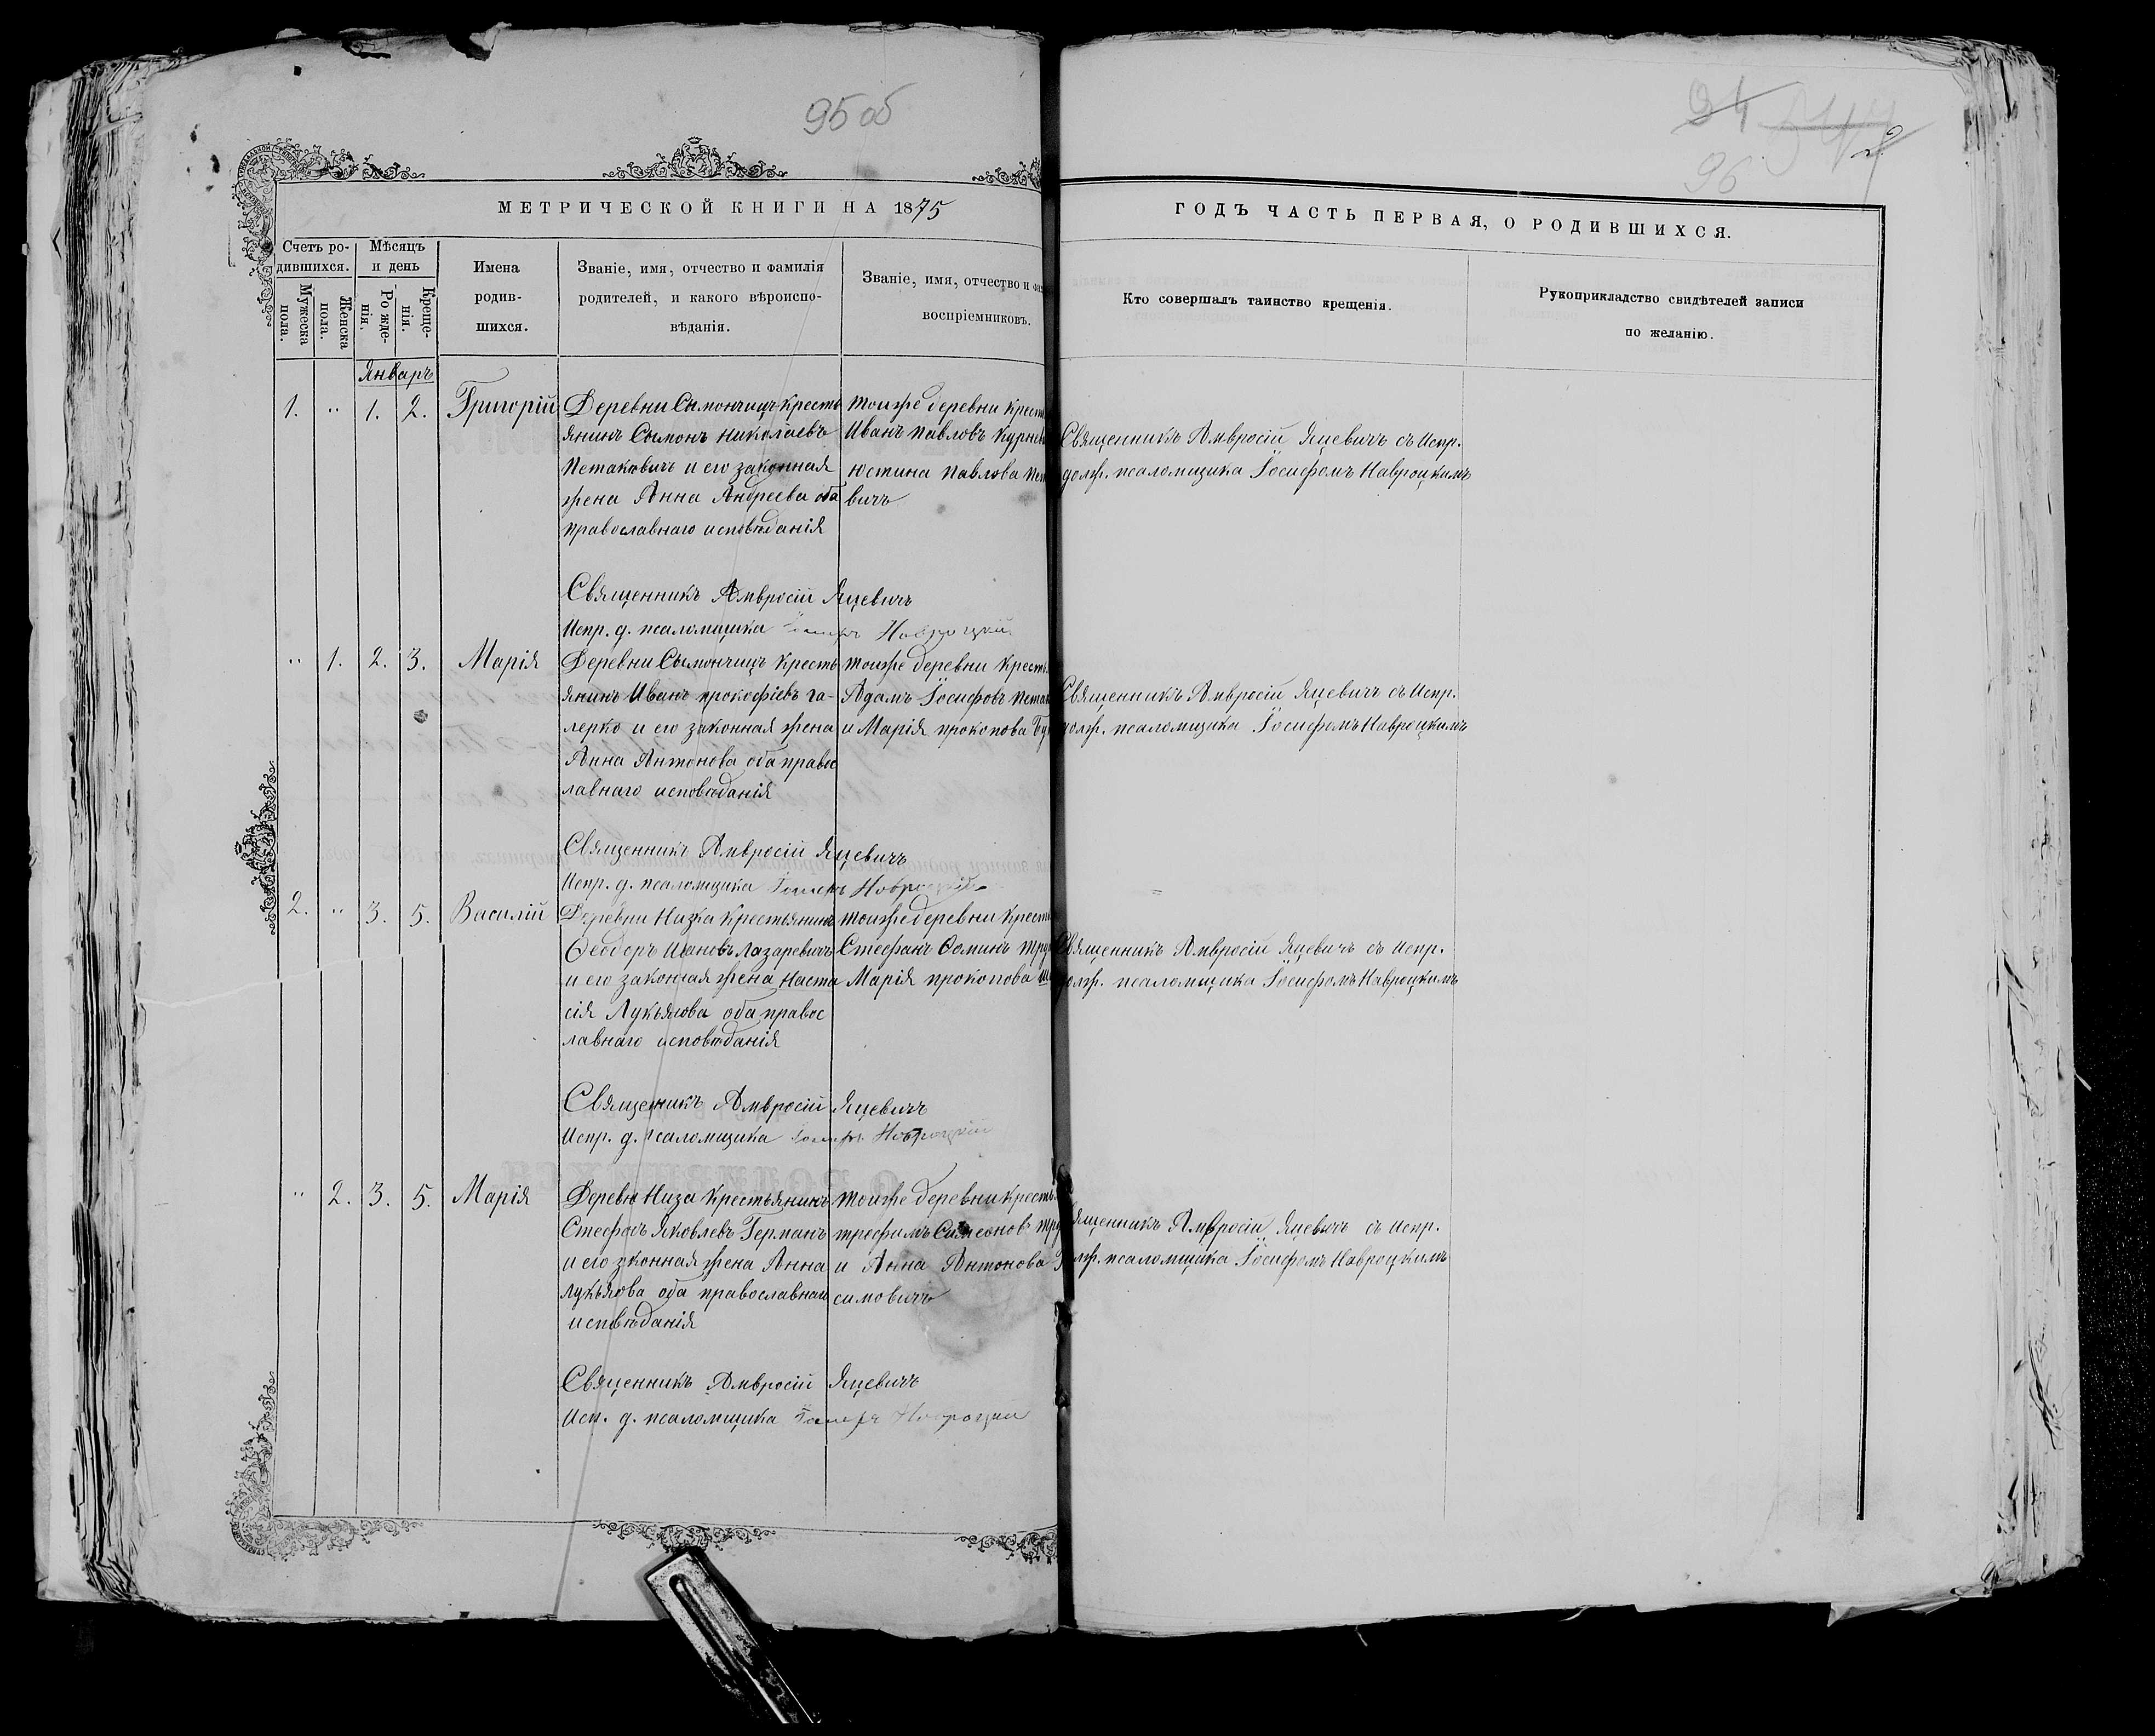 95 об
96
МЕТРИЧЕСКОЙ КНИГИ НА 1875
ГОДЪ ЧАСТЬ ПЕРВАЯ, О РОДИВШИХСЯ.
Счетъ ро-
дившихся.
Мужеска
пола.
Женска
пола.
Мѣсяцъ
и день
Рожде-
нія.
Креще-
нія.
Имена
родив-
шихся.
Званіе, имя, отчество и фамилія
родителей, и какого вѣроиспо-
вѣданія.
Званіе, имя, отчество и
воспріемниковъ.
Кто совершалъ таинство крещенія.
Рукоприкладство свидѣтелей записи
по желанію.
Январь
1. " 1. 2. Григорій
Деревни Сымончицъ кресть
янинъ Сымонъ Николаевъ
Петакович и его законная
жена Анна Андреева оба
православнаго исповѣданія
тоиже деревни
Иванъ Павловъ
Юстина Павлова
вичъ
Священникъ Амвросій Яцевичъ съ Испр.
долж. псаломщика Іосифомъ Навроцкимъ
Священникъ Амвросій Яцевичъ
Испр. д. псаломщика Іосифъ Навроцкій
" 1. 2. 3. Марія
Деревни Сымончицъ кресть
янинъ Иванъ Прокофіевъ Га-
лерко и его законная жена
Анна Антонова оба правос
лавнаго исповѣданія
тоиже деревни
Адамъ Іосифовъ
и Марія Прокопова
Священникъ Амвросій Яцевичъ съ Испр.
долж. псаломщика Іосифомъ Навроцкимъ
Священникъ Амвросій Яцевичъ
Испр. д. псаломщика Іосифъ Навроцкій
2. " 3. 5. Василій
Деревни Низка Крестьянинъ
Феодоръ Ивановъ Лазаревичъ
и его законная жена Наста
сія Лукьянова оба правос
лавнаго исповѣданія
тоиже деревни
Стефанъ Фоминъ
Марія Прокопова
Священникъ Амвросій Яцевичъ съ Испр.
долж. псаломщика Іосифомъ Навроцкимъ
Священникъ Амвросій Яцевичъ
Испр. д. псаломщика Іосифъ Навроцкій
" 2. 3. 5. Марія
Деревни Низа Крестьянинъ
Стефанъ Яковлевъ Германъ
и его законная жена Анна
Лукьянова оба православнаго
исповѣданія
тоиже деревни
Трофимъ Симеоновъ
и Анна Антонова
симовичъ
Священникъ Амвросій Яцевичъ съ Испр.
долж. псаломщика Іосифомъ Навроцкимъ
Священникъ Амвросій Яцевичъ
Исп. д. псаломщика Іосифъ Навроцкій